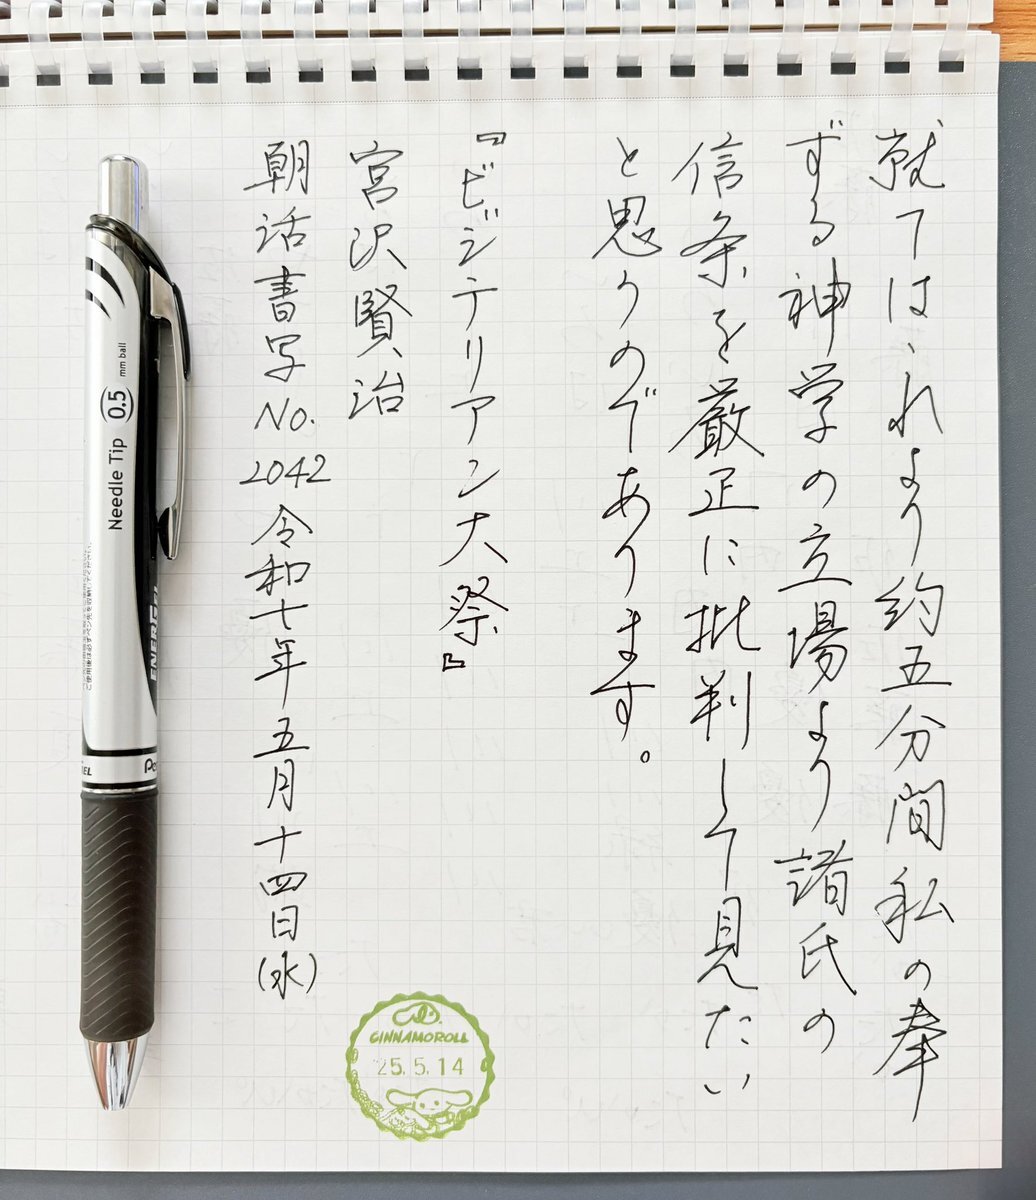 就てはこれより約五分間私の奉
ずる神学の立場より諸氏の
信条を厳正に批判して見たい
と思うのであります。
『ビジテリアン大祭』
宮沢賢治
朝活書写No.2042令和七年五月十四日(水)
CINNAMOROLL
25.5.14
Needle Tip 0.5 mm ball
ENERGEL